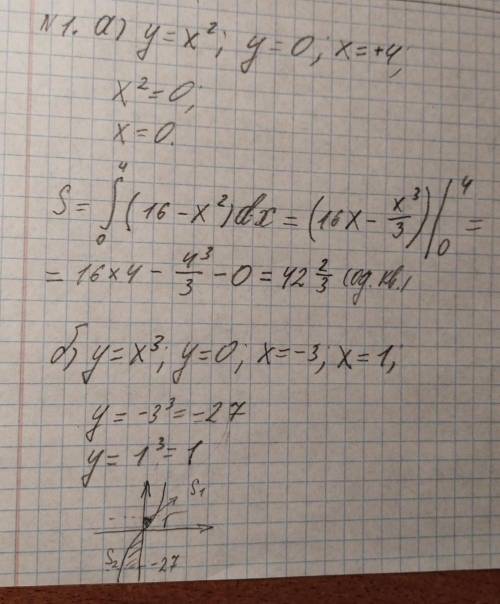 N1. а) y = x²; y = 0; x = +4;
x² = 0;
x = 0.
S = ∫₀⁴ (16 - x²) dx = (16x - x³/3) |₀⁴ =
= 16 × 4 - 4³/3 - 0 = 42 2/3 (од. кв.)
б) y = x³; y = 0; x = -3; x = 1;
y = -3³ = -27
y = 1³ = 1
S₁
1
S₂
-27